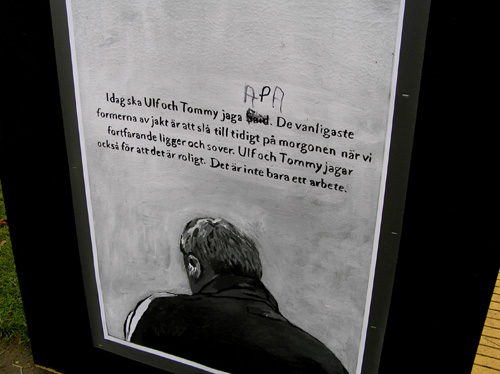 APA
Idag ska Ulf och Tommy jaga . De vanligaste
formerna av jakt är att slå till tidigt på morgonen när vi
fortfarande ligger och sover. Ulf och Tommy jagar
också för att det är roligt. Det är inte bara ett arbete.